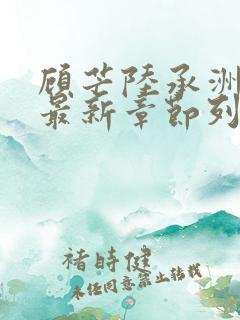 顾芒陆承洲
最新章节列
褚时健
未经同意禁止转载